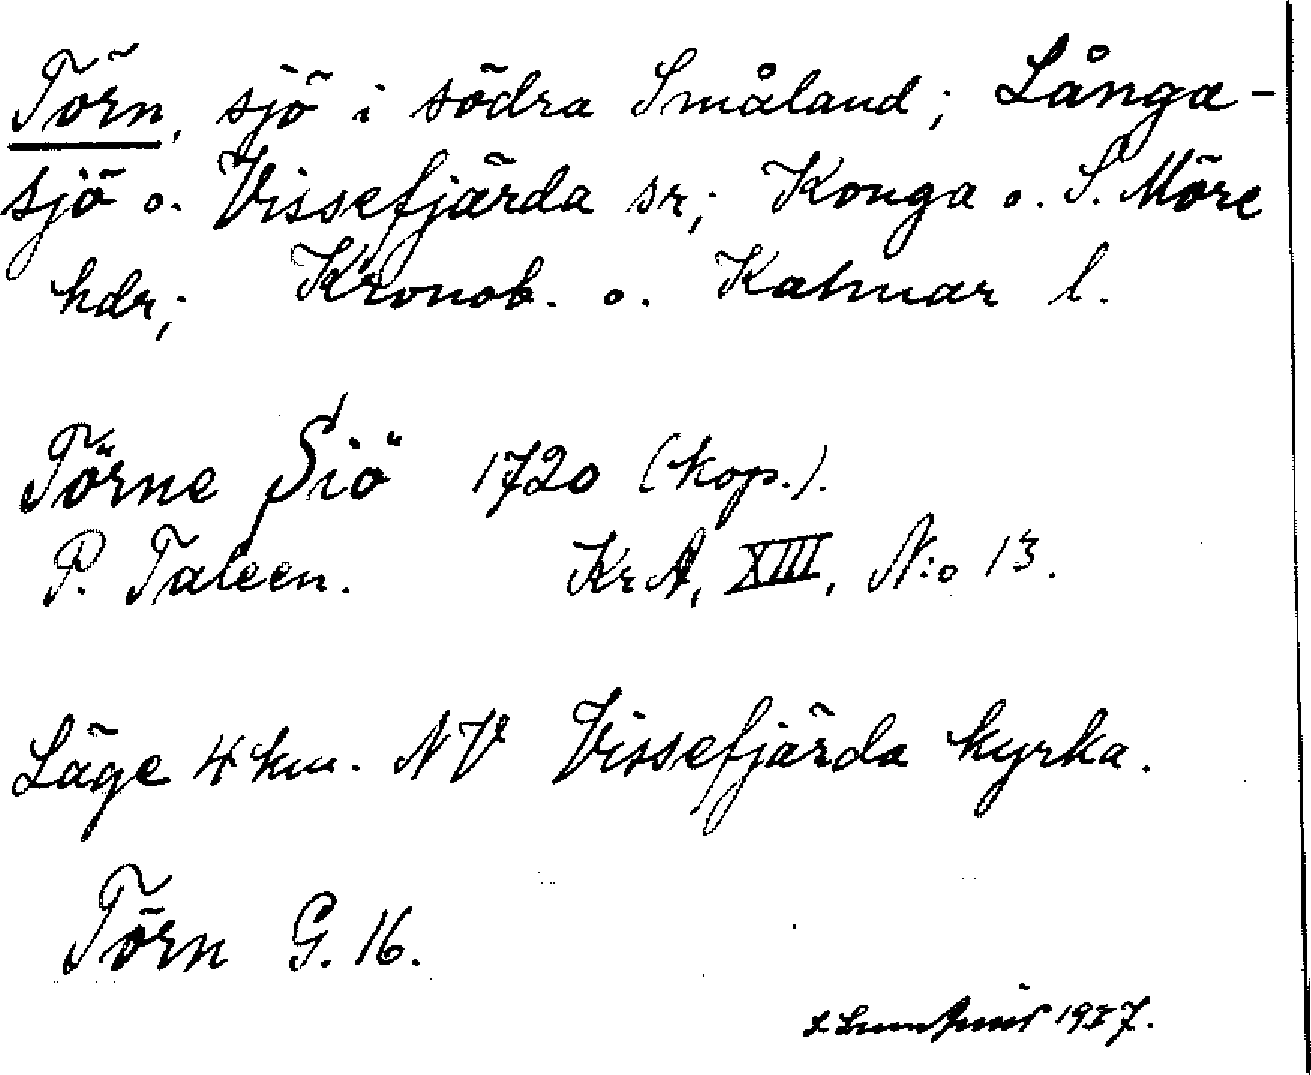 Törn, sjö i södra Småland; Långa-
sjö o. Vissefjärda sr; Konga o. S. Möre
hdr; Kronob. o. Kalmar l.
Törne Siö 1720 (kop.).
P. Taleen. KrA, XIII, N:o 13.
Läge 4 km. NV Vissefjärda kyrka.
Törn G. 16.
1937.